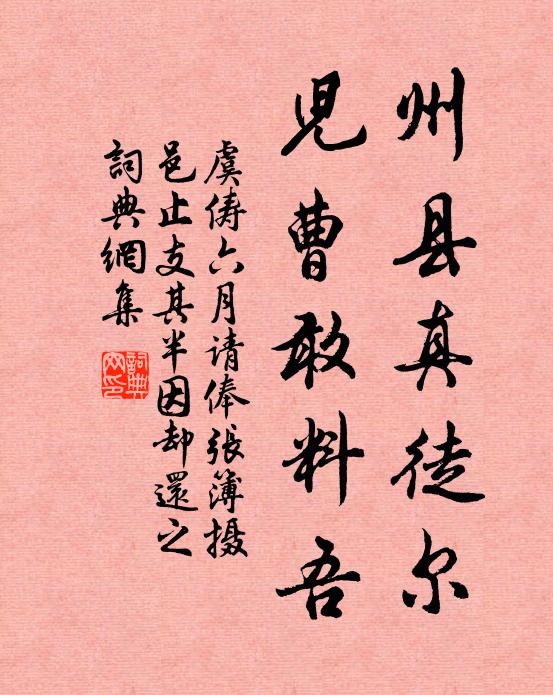 州县真徒尔
児曹敢料吾
虞俦六月请俸张簿摄
邑止支其半因却還之
詞典網集
詞典網印